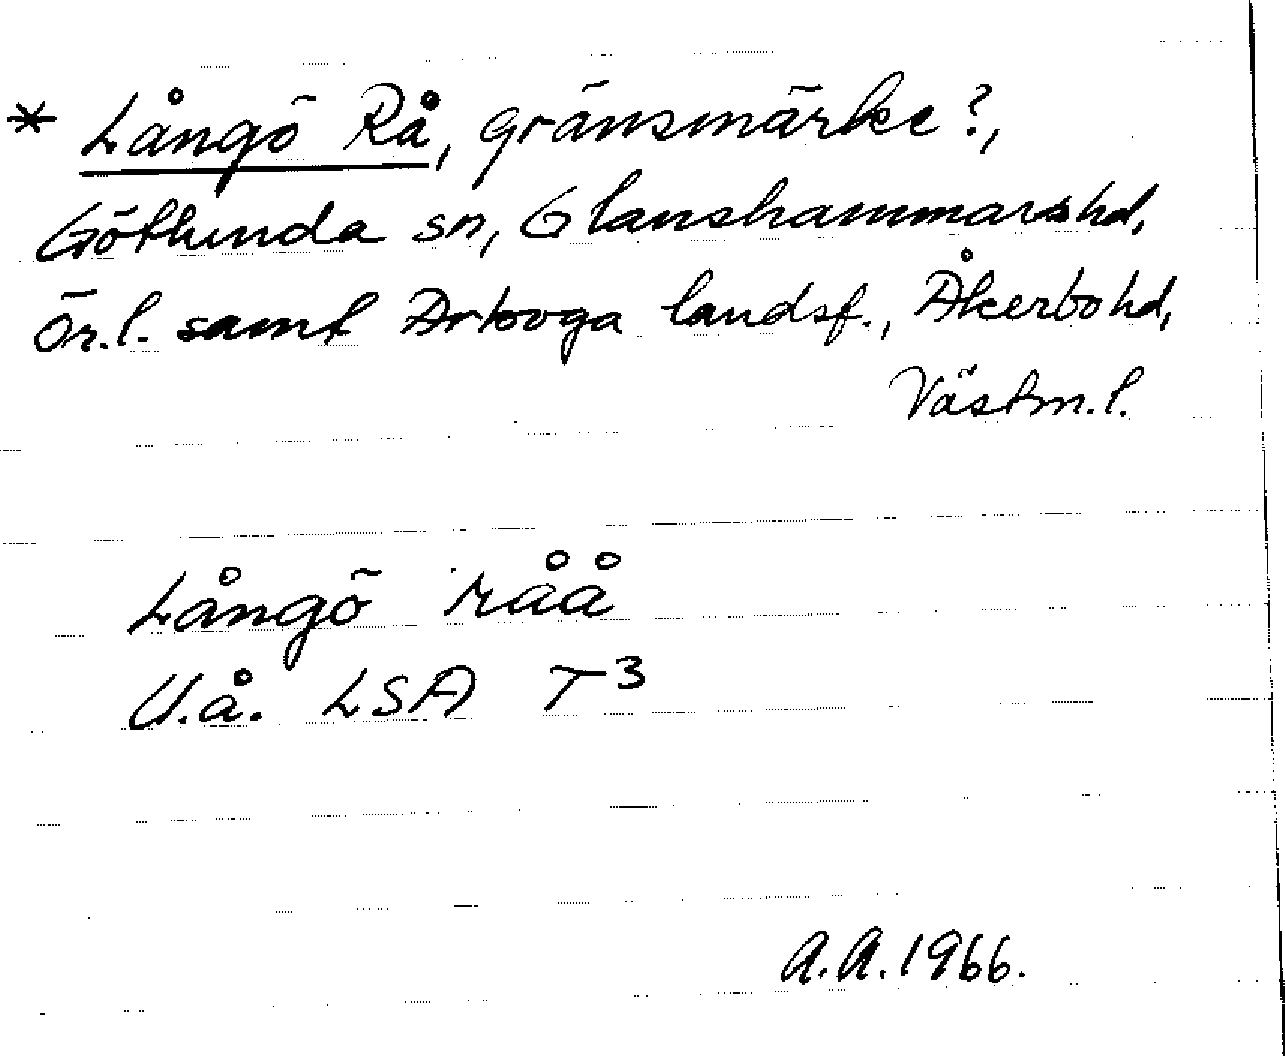 * Långö Rå, gränsmärke?,
Götlunda sn, Glanshammars hd,
Ör. l. samt Arboga landsf., Åkerbo hd,
Västm. l.
Långö råå
U.å. LSA T3
A.A. 1966.